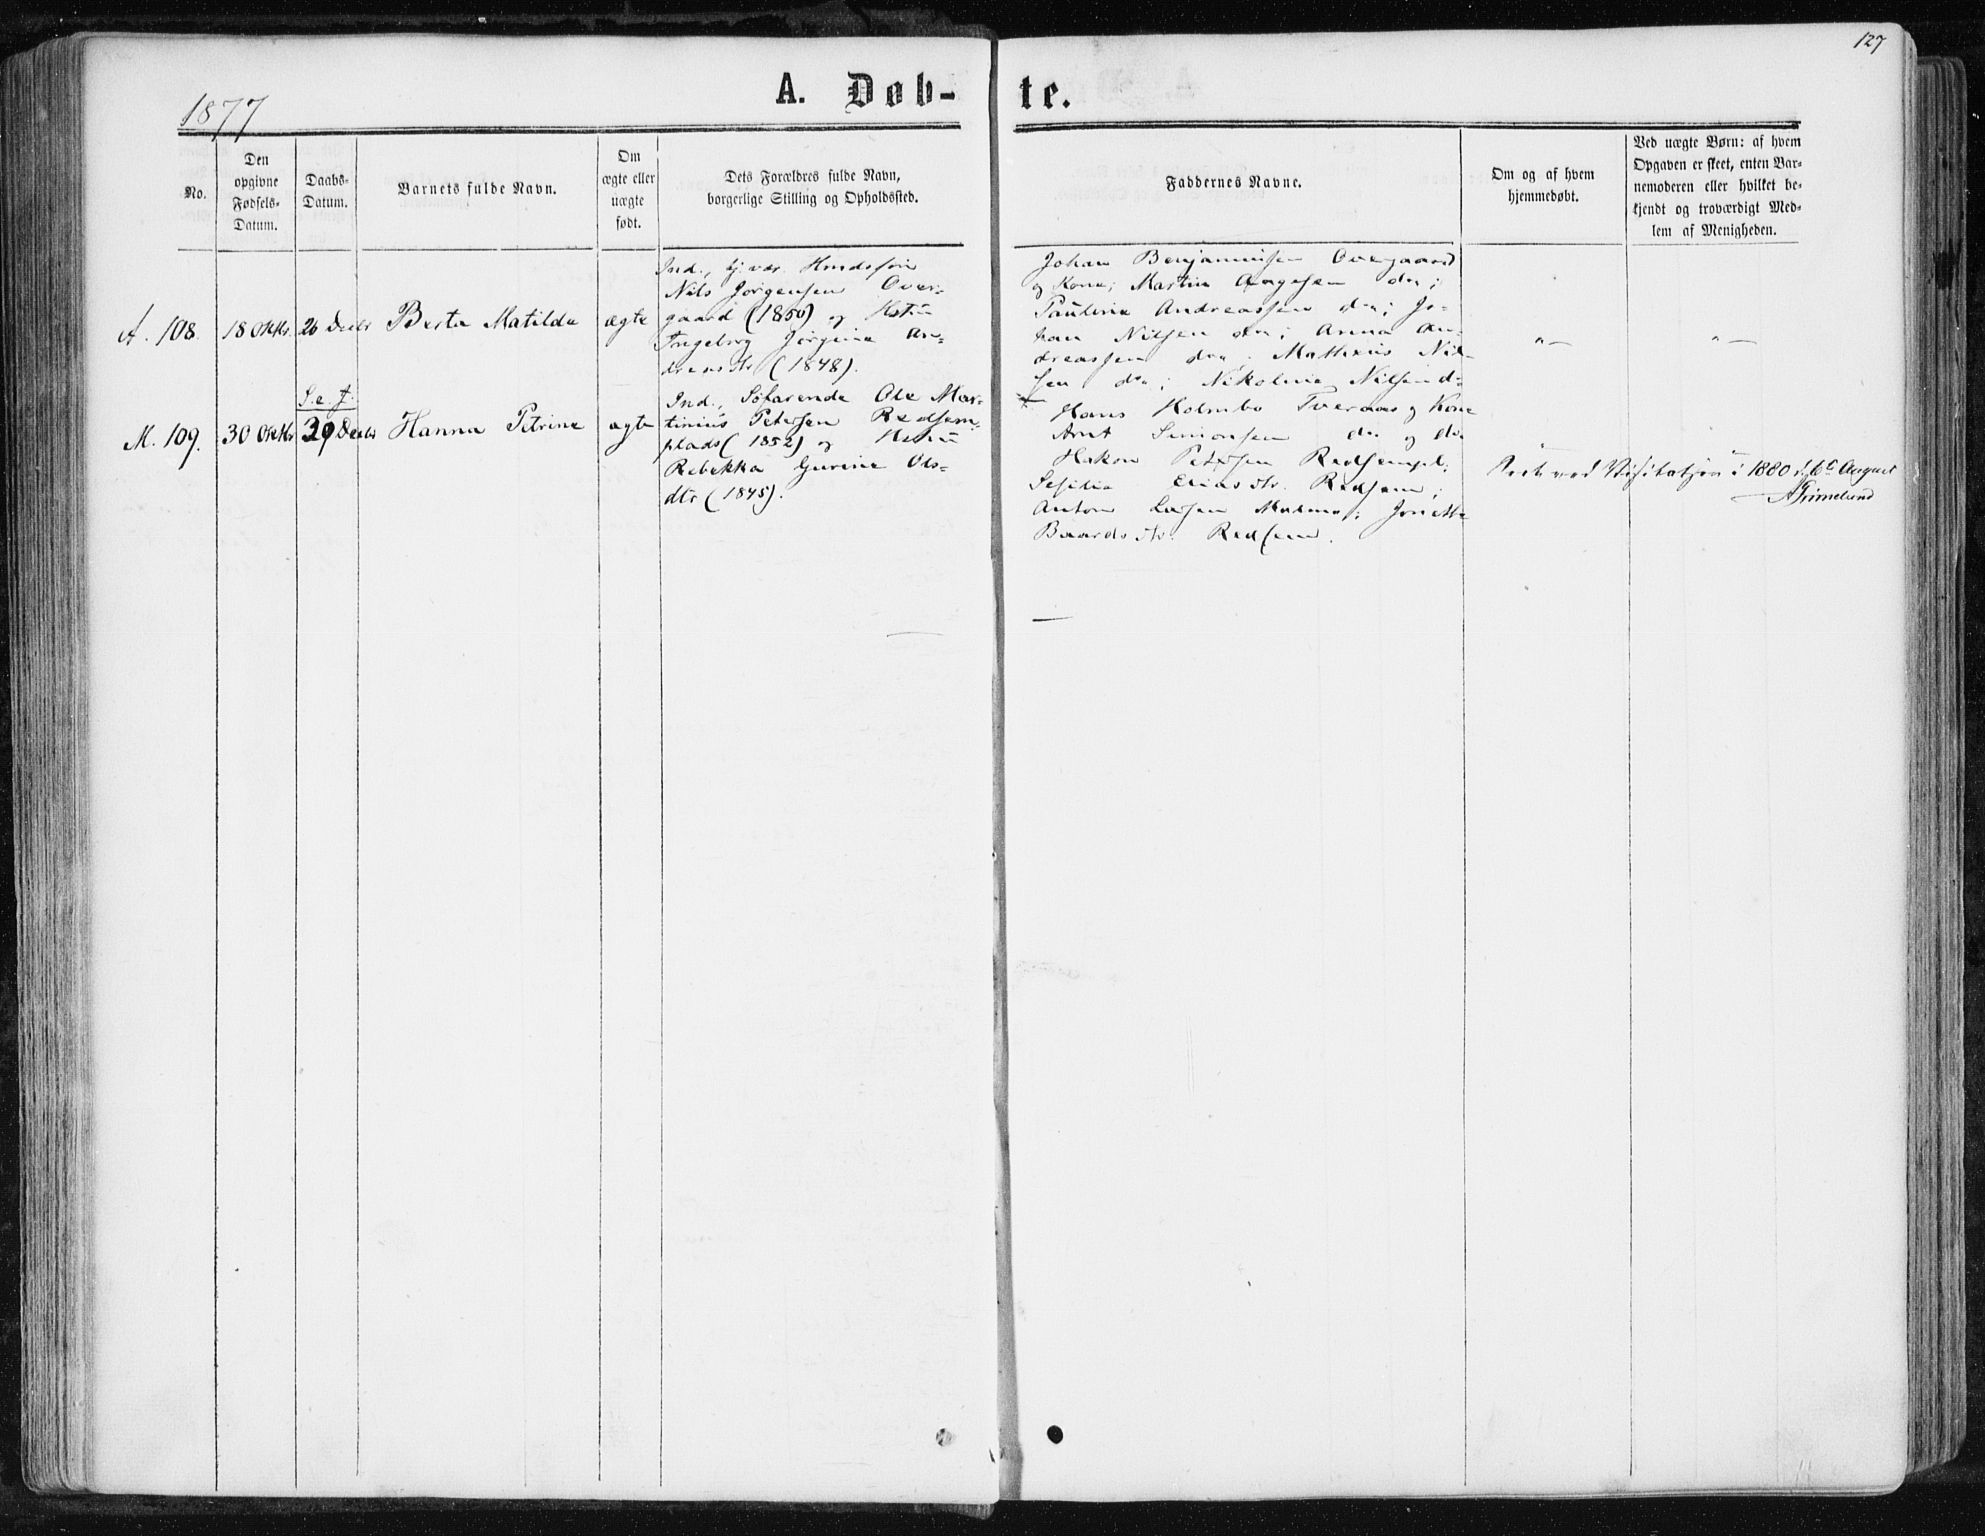 127
1877
A. Døb-
te.
No.
Den
opgivne
Fødsels-
Datum.
Daabs-
Datum.
Barnets fulde Navn.
Om
ægte eller
uægte
født.
Dets Forældres fulde Navn,
borgerlige Stilling og Opholdssted.
Faddernes Navne.
Om og af hvem
hjemmedøbt.
Ved uægte Børn: af hvem
Opgaven er skeet, enten Bar-
nemoderen eller hvilket be-
kjendt og troværdigt Med-
lem af Menigheden.
A. 108. 18 Oktbr. 26 Decbr Berta Matilda ægte
Ind.,
Nils Jørgensen Over-
gaard (1850) og Hstru
Ingeborg Jørgine An-
dreasdtr (1848).
Johan Benjaminsen Overgaard
og Kone; Martin Aagesen do;
Pauline Andreassen do; Jo-
han Nilsen do; Anna An-
dreassen do; Mathæus Nil-
sen do; Nikoline Nilsen do
"—
"—
S. e. J.
M. 109. 30 Oktbr 30 Decbr Hanna Petrine ægte
Ind., Søfarende Ole Mar-
tinius Petersen Redsem-
plads (1852) og Hstru
Rebekka Gurine Ols-
dtr (1845).
Hans Holmbo Tveraas og Kone
Arnt Simonsen do og do
Hakon Petersen Redsempl;
Sesilie Eliasdtr. Redsem;
Anton Larsen Malmo; Jonette
Baardsdtr. Redsem.
ved Visitatsen i 1880 d. 6te August
AGrimelund